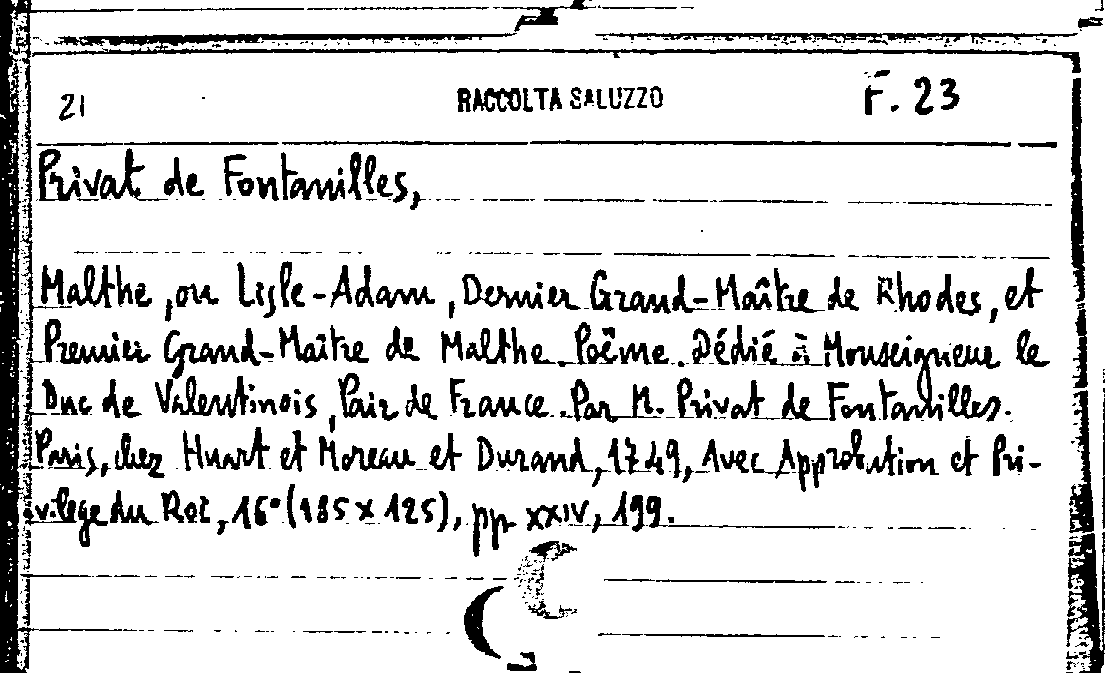 21 RACCOLTA SALUZZO F. 23
Privat de Fontanilles,
Malthe, ou Lisle-Adam, Dernier Grand-Maître de Rhodes, et
Premier Grand-Maître de Malthe. Poëme. Dédié à Monseigneur le
Duc de Valentinois, Pair de France. Par M. Privat de Fontanilles.
Paris, chez Huart et Moreau et Durand, 1749, Avec Approbution et Pri-
vilege du Roi, 16° (185 x 125), pp. XXIV, 199.